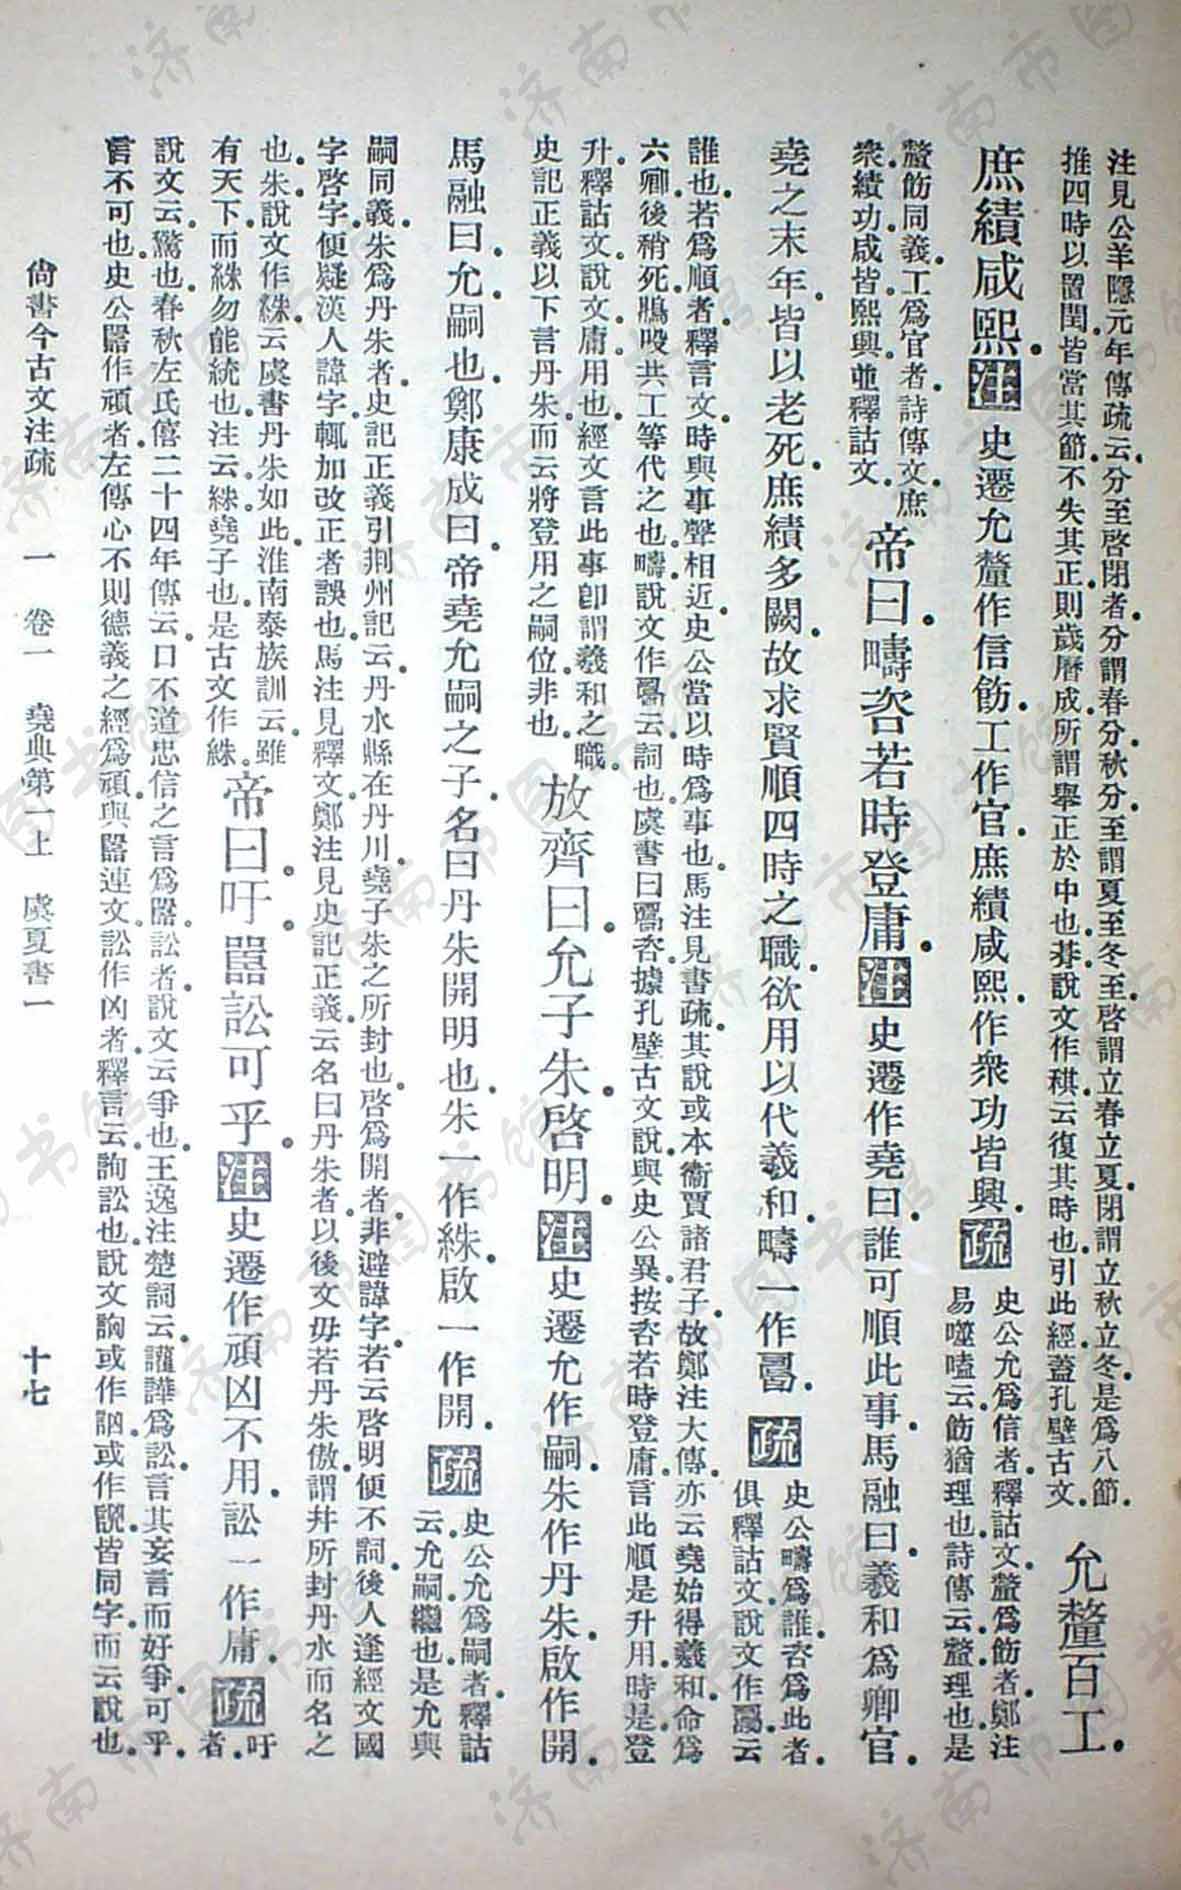 注見公羊隱元年傳疏云。分至啓閉者。分謂春分。秋分。至謂夏至。冬至。啓謂立春立夏。閉謂立秋立冬。是爲八節。
推四時以置閏。皆當其節。不失其正。則歲曆成。所謂舉正於中也。朞。說文作稘。云。復其時也。引此經。蓋孔壁古文。
允釐百工。
庶績咸熙。注史遷允釐作信飭。工作官。庶績咸熙作衆功皆興。疏
史公允爲信者。釋詁文。釐爲飭者。鄭注
易噬嗑云。飭猶理也。詩傳云。釐。理也。是
釐飭同義。工爲官者。詩傳文。庶
衆。績功。咸皆。熙興。並釋詁文。
帝曰。疇咨若時登庸。注史遷作堯曰。誰可順此事。馬融曰。羲和爲卿官。
堯之末年。皆以老死。庶績多闕。故求賢順四時之職。欲用以代羲和。疇一作𠷎。疏
史公疇爲誰。咨爲此者。
俱釋詁文。說文作𠷎。云
誰也。若爲順者。釋言文。時與事聲相近。史公當以時爲事也。馬注見書疏。其說或本衞賈諸君子。故鄭注大傳。亦云堯始得羲和。命爲
六卿。後稍死。鵰吺共工等代之也。疇。說文作𠷎。云。詞也。虞書曰𠷎咨。據孔壁古文說。與史公異。按咨若時登庸。言此順是升用。時。是。登
升。釋詁文。說文。庸。用也。經文言此事。卽謂羲和之職。
史記正義以下言丹朱。而云將登用之嗣位。非也。
放齊曰。允子朱啓明。注史遷允作嗣。朱作丹朱。啟作開。
馬融曰。允。嗣也。鄭康成曰。帝堯允嗣之子。名曰丹朱。開明也。朱一作絑。啟一作開。疏
史公允爲嗣者。釋詁
云。允。嗣。繼也。是允與
嗣同義。朱爲丹朱者。史記正義引荆州記云。丹水縣在丹川。堯子朱之所封也。啓爲開者。非避諱字。若云啓明便不詞。後人逢經文國
字啓字。便疑漢人諱字。輒加改正者誤也。馬注見釋文。鄭注見史記正義。云名曰丹朱者。以後文毋若丹朱傲。謂幷所封丹水而名之
也。朱。說文作絑。云。虞書丹朱如此。淮南泰族訓云。雖
有天下。而絑勿能統也。注云。絑。堯子也。是古文作絑。
帝曰。吁。嚚訟可乎。注史遷作頑凶不用。訟一作庸。疏
吁
者。
說文云。驚也。春秋左氏僖二十四年傳云。口不道忠信之言爲嚚。訟者。說文云。爭也。王逸注楚詞云。讙譁爲訟。言其妄言而好爭。可乎。
言不可也。史公嚚作頑者。左傳。心不則德義之經爲頑。與嚚連文。訟作凶者。釋言云。訩。訟也。說文訩或作詾。或作𧧗。皆同字。而云說也。
尙書今古文注疏　一　卷一　堯典第一上　虞夏書一　十七